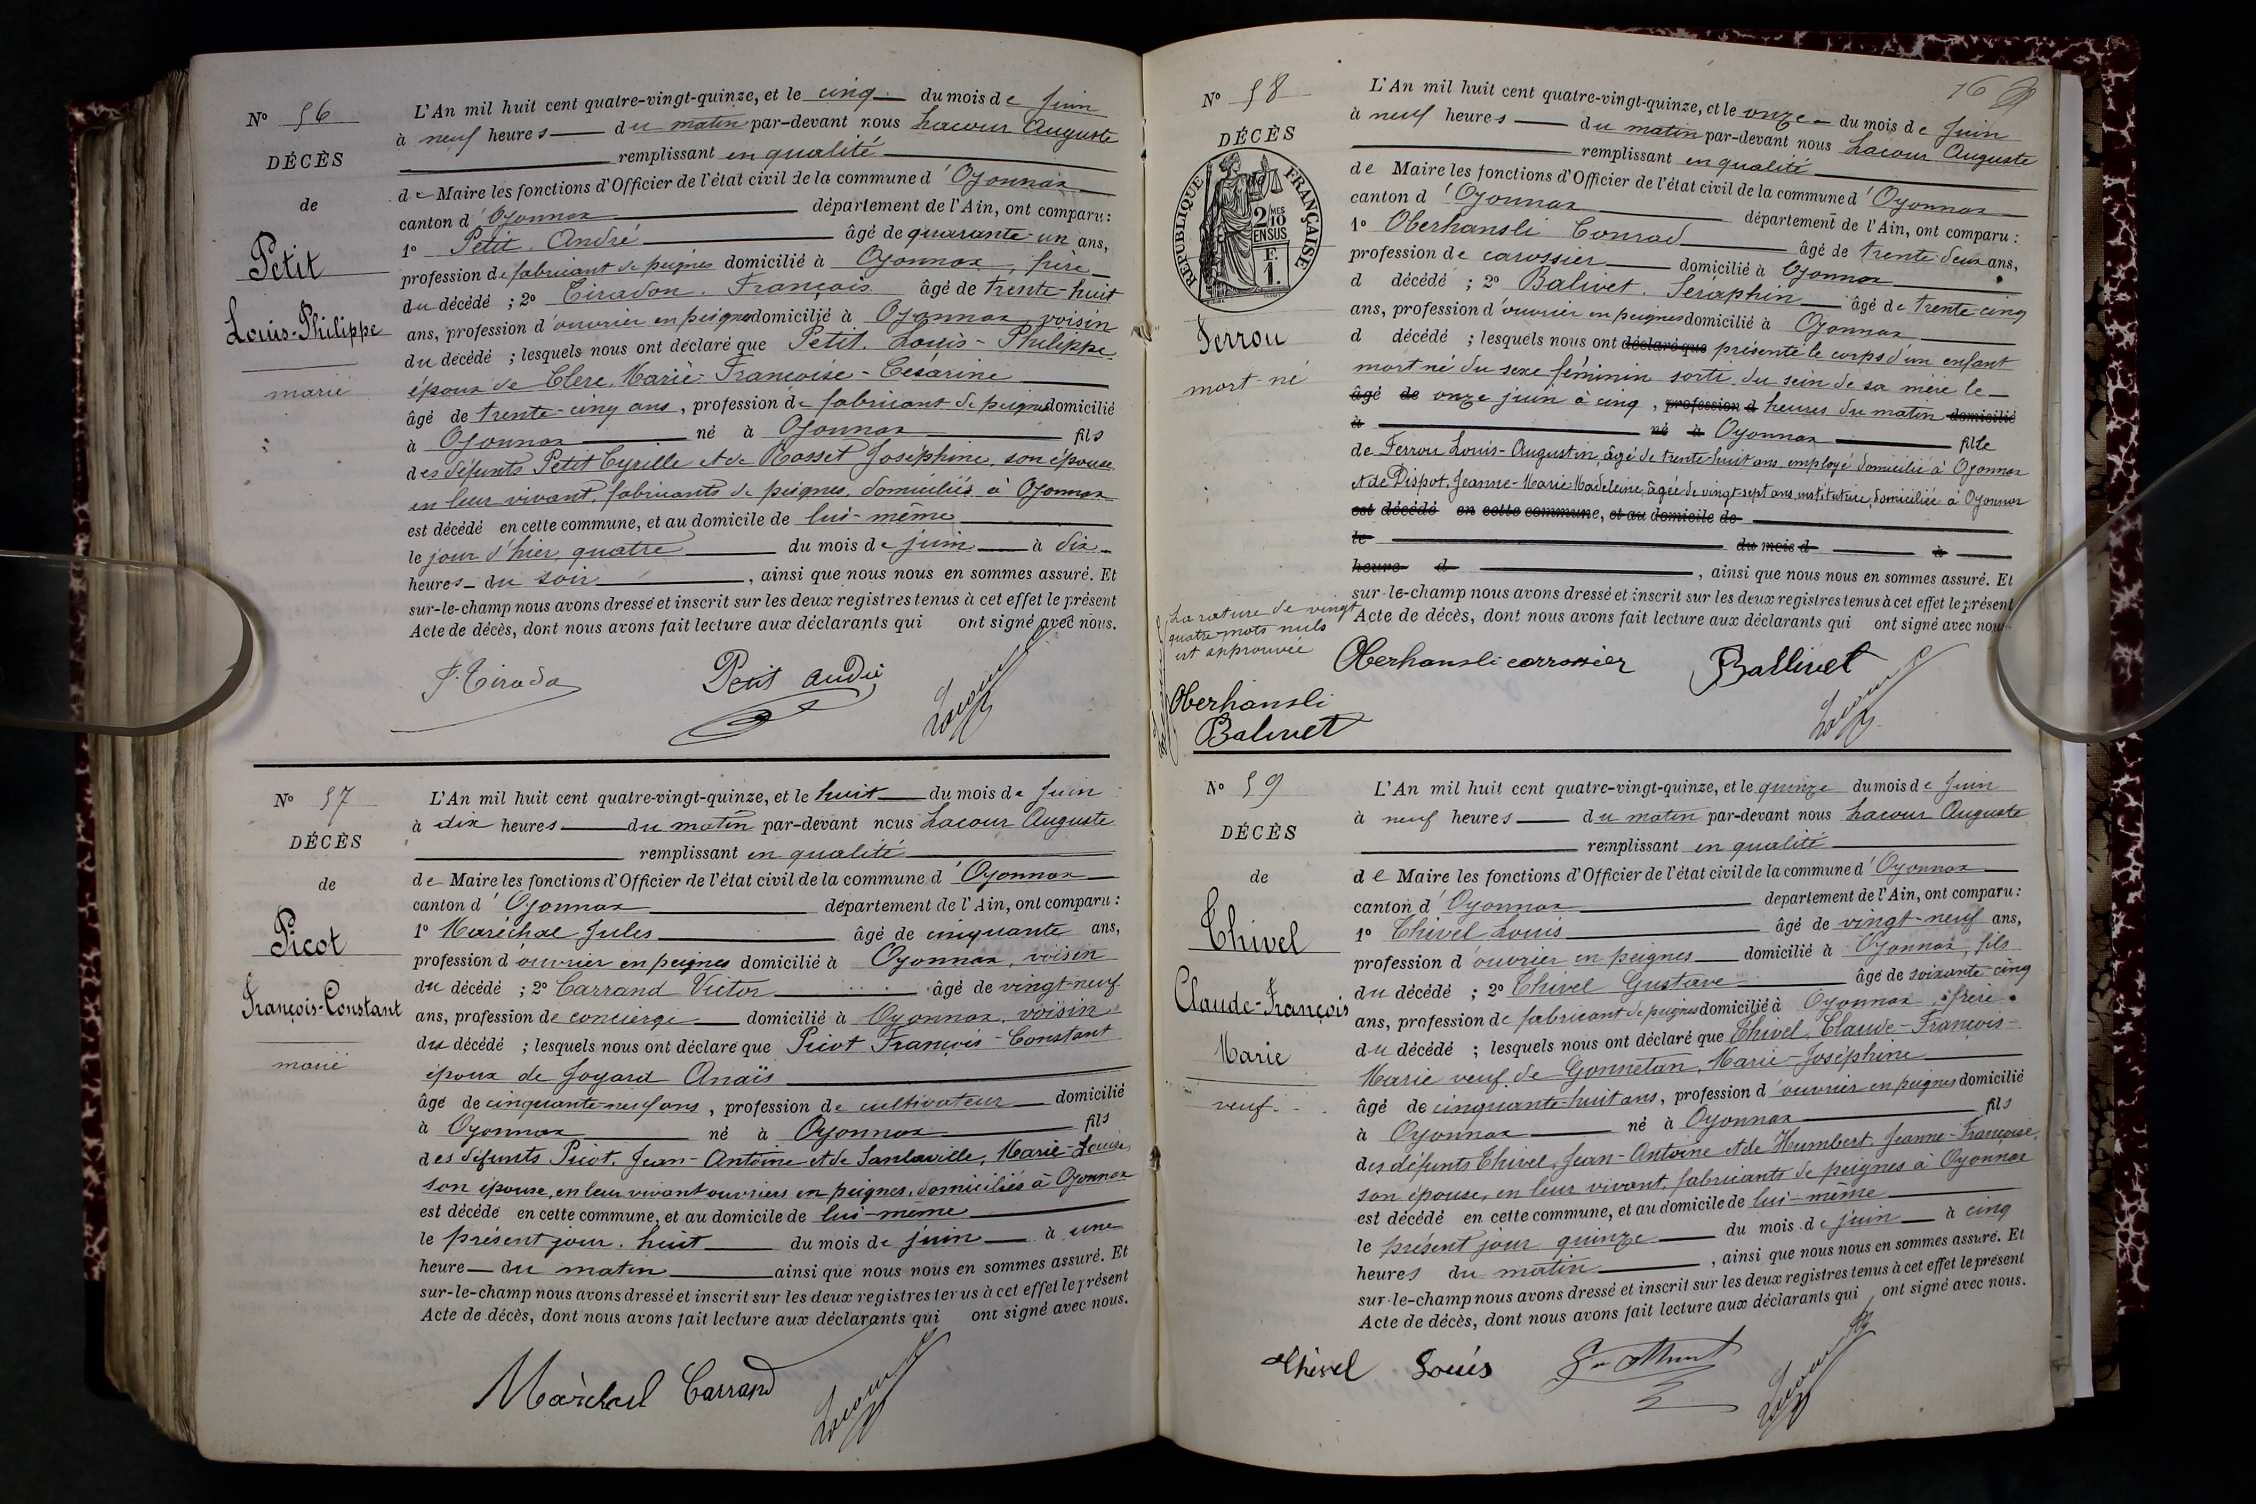 N° 56
DÉCÈS
de
Petit
Louis-Philippe
marié
L'An mil huit cent quatre-vingt-quinze, et le cinq du mois de Juin
à neuf heures du matin par-devant nous Lacour Auguste
remplissant en qualité
de Maire les fonctions d'Officier de l'état civil de la commune d'Oyonnax
canton d'Oyonnax département de l'Ain, ont comparu :
1° Petit André âgé de quarante-un ans,
profession de fabricant de peignes domicilié à Oyonnax, frère
du décédé ; 2° Tiradon François âgé de trente-huit
ans, profession d'ouvrier en peignes domicilié à Oyonnax voisin
du décédé ; lesquels nous ont déclaré que Petit, Louis-Philippe
époux de Clerc, Marie-Françoise-Césarine
âgé de trente-cinq ans, profession de fabricant de peignes domicilié
à Oyonnax né à Oyonnax fils
des défunts Petit Cyrille et de Rosset Joséphine, son épouse
en leur vivant, fabricants de peignes, domiciliés à Oyonnax
est décédé en cette commune, et au domicile de lui-même
le jour d'hier quatre du mois de juin à dix
heures du soir, ainsi que nous nous en sommes assuré. Et
sur-le-champ nous avons dressé et inscrit sur les deux registres tenus à cet effet le présent
Acte de décès, dont nous avons fait lecture aux déclarants qui ont signé avec nous.
Petit André
Lacour
N° 57
DÉCÈS
de
Picot
François-Constant
marié
L'An mil huit cent quatre-vingt-quinze, et le huit du mois de Juin
à dix heures du matin par-devant nous Lacour Auguste
remplissant en qualité
de Maire les fonctions d'Officier de l'état civil de la commune d'Oyonnax
canton d'Oyonnax département de l'Ain, ont comparu :
1° Maréchal Jules âgé de cinquante ans,
profession d'ouvrier en peignes domicilié à Oyonnax, voisin
du décédé ; 2° Carrand Victor âgé de vingt-neuf
ans, profession de concierge domicilié à Oyonnax, voisin
du décédé ; lesquels nous ont déclaré que Picot François-Constant
époux de Joyard Anaïs
âgé de cinquante-neuf ans, profession de cultivateur domicilié
à Oyonnax né à Oyonnax fils
des défunts Picot, Jean-Antoine et de Sanlaville, Marie-Louise,
son épouse, en leur vivant ouvriers en peignes, domiciliés à Oyonnax
est décédé en cette commune, et au domicile de lui-même
le présent jour huit du mois de juin à une
heure du matin ainsi que nous nous en sommes assuré. Et
sur-le-champ nous avons dressé et inscrit sur les deux registres tenus à cet effet le présent
Acte de décès, dont nous avons fait lecture aux déclarants qui ont signé avec nous.
Maréchal Carrand
Lacour
16
N° 58
DÉCÈS
RÉPUBLIQUE FRANÇAISE
2 MES 10
EN SUS
F.
1.
Ferrou
mort-né
L'An mil huit cent quatre-vingt-quinze, et le onze du mois de Juin
à neuf heures du matin par-devant nous Lacour Auguste
remplissant en qualité
de Maire les fonctions d'Officier de l'état civil de la commune d'Oyonnax
canton d'Oyonnax département de l'Ain, ont comparu :
1° Oberhansli Conrad âgé de trente-deux ans,
profession de carossier domicilié à Oyonnax
d décédé ; 2° Balivet Séraphin âgé de trente-cinq
ans, profession d'ouvrier en peignes domicilié à Oyonnax
d décédé ; lesquels nous ont déclaré que présenté le corps d'un enfant
mort né du sexe féminin sorti du sein de sa mère le
âgé de onze juin à cinq, profession d heures du matin domicilié
à né à Oyonnax fille
de Ferrou Louis-Augustin, âgé de trente-huit ans, employé domicilié à Oyonnax
et de Dispot, Jeanne-Marie-Madeleine, âgée de vingt-sept ans, institutrice, domiciliée à Oyonnax
est décédé en cette commune, et au domicile de
le du mois d à
heure d, ainsi que nous nous en sommes assuré. Et
sur-le-champ nous avons dressé et inscrit sur les deux registres tenus à cet effet le présent
Acte de décès, dont nous avons fait lecture aux déclarants qui ont signé avec nous
La rature de vingt
quatre mots nuls
est approuvée
Oberhansli carrossier Ballivet
Lacour
Oberhansli
Balivet
N° 59
DÉCÈS
de
Thivel
Claude-François
Marie
veuf
L'An mil huit cent quatre-vingt-quinze, et le quinze du mois de Juin
à neuf heures du matin par-devant nous Lacour Auguste
remplissant en qualité
de Maire les fonctions d'Officier de l'état civil de la commune d'Oyonnax
canton d'Oyonnax departement de l'Ain, ont comparu :
1° Thivel Louis âgé de vingt-neuf ans,
profession d'ouvrier en peignes domicilié à Oyonnax, fils
du décédé ; 2° Thivel Gustave âgé de soixante-cinq
ans, profession de fabricant de peignes domicilié à Oyonnax, frère
du décédé ; lesquels nous ont déclaré que Thivel, Claude-François-
Marie veuf de Gonnetan, Marie-Joséphine
âgé de cinquante-huit ans, profession d'ouvrier en peignes domicilié
à Oyonnax né à Oyonnax fils
des défunts Thivel, Jean-Antoine et de Humbert, Jeanne-Françoise,
son épouse, en leur vivant, fabricants de peignes à Oyonnax
est décédé en cette commune, et au domicile de lui-même
le présent jour quinze du mois de juin à cinq
heures du matin, ainsi que nous nous en sommes assuré. Et
sur-le-champ nous avons dressé et inscrit sur les deux registres tenus à cet effet le présent
Acte de décès, dont nous avons fait lecture aux déclarants qui ont signé avec nous.
Thivel Louis
Lacour